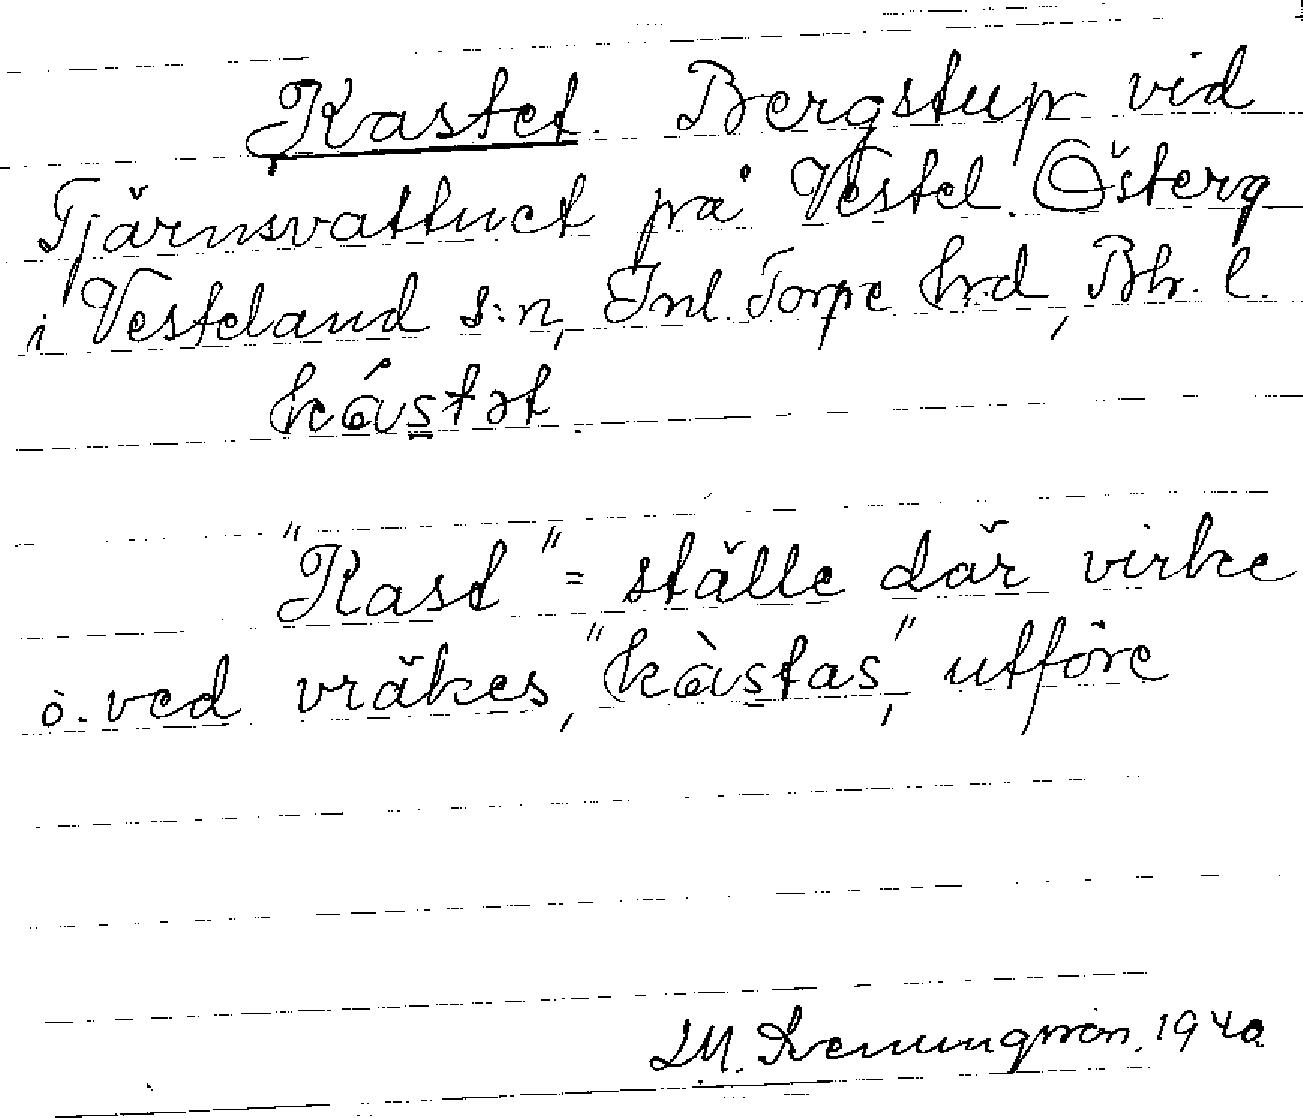 Kastet. Bergstup vid
Tjärnsvattnet på Vestel. Österg
i Vesteland s:n, Inl. Torpe hrd, Bh. l.
kástət.
"Kast" = ställe där virke
o. ved vräkes, "kàstas", utföre
M. 1940